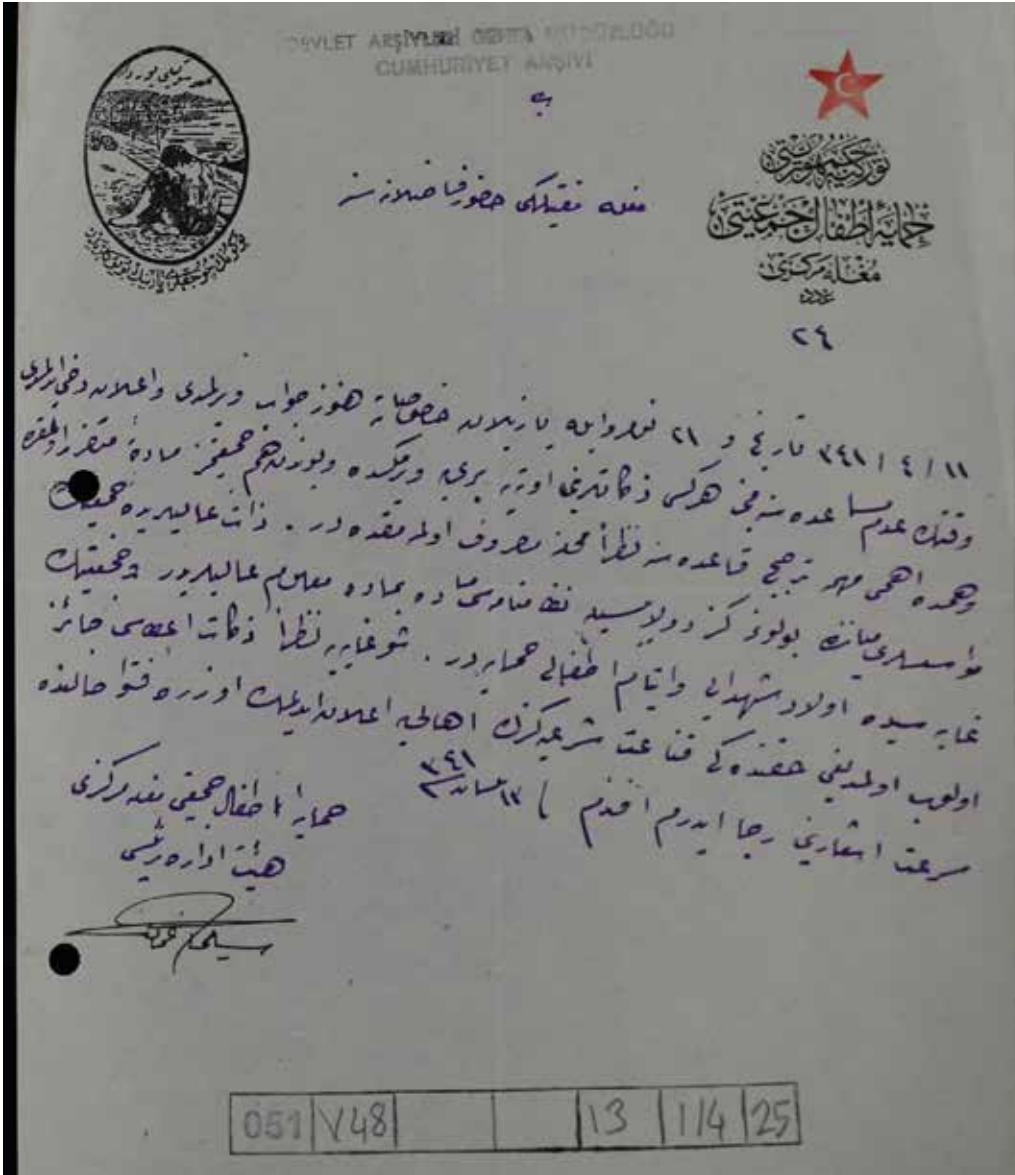 DEVLET ARŞİVLERİ GENEL MÜDÜRLÜĞÜ
CUMHURİYET ARŞİVİ
توركيه جمهوريتى
حمايۀ اطفال جمعيتى
مغله مركزى
عدد
٢٤
مغله مفتيلكى حضور فاضلانه سنه
١١ / ٤ / ٣٤١ تاريخ و ٢١ نومرو ايله يازيلان خصوصاته هنوز جواب ويرلمدى واعلان دخى
وقتك عدم مساعده سنه مبنى هركس زكاتلرينى اوته يه برى يه ويرمكده وبوندن هم جمعيتمز مادةً متضرر
وهمده اهمى مهمه ترجيح قاعده سنه نظراً محذور مصروف اولمقده در . ذات عاليلريده جمعيتك
مؤسسلرى مياننده بولونديكز نظامنامه سى ماده بماده معلوم عاليلريدر وجمعيتك
غايه سيده اولاد شهدايى وايتام اطفالى حمايه در . شو غايه يه نظراً زكات اعطاسى جائز
اولوب اولمديغى حقنده كى قناعت شرعيه كزك اهالى يه اعلان ايدلمك اوزره فتوا حالنده
سرعت اشعارينى رجا ايدرم افندم ١٣ نيسان ٣٤١
حمايۀ اطفال جمعيتى مغله مركزى
هيئت اداره رئيسى
051 V48 13 114 25